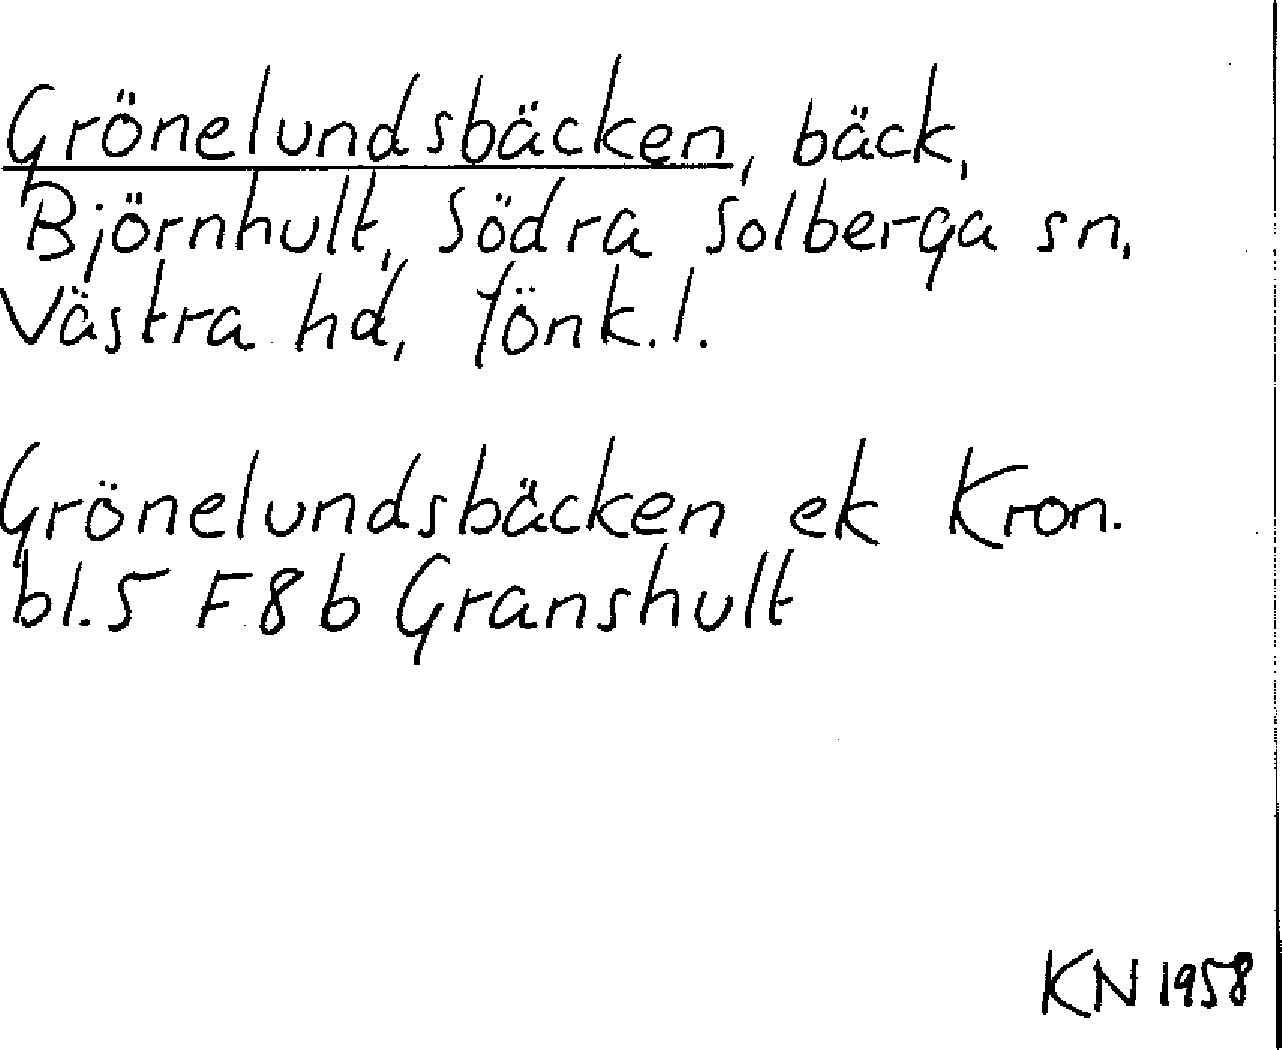 Grönelundsbäcken, bäck,
Björnhult, Södra Solberga sn,
Västra hd, Jönk.l.
Grönelundsbäcken ek Kron.
bl.5 F8b Granshult
KN 1958